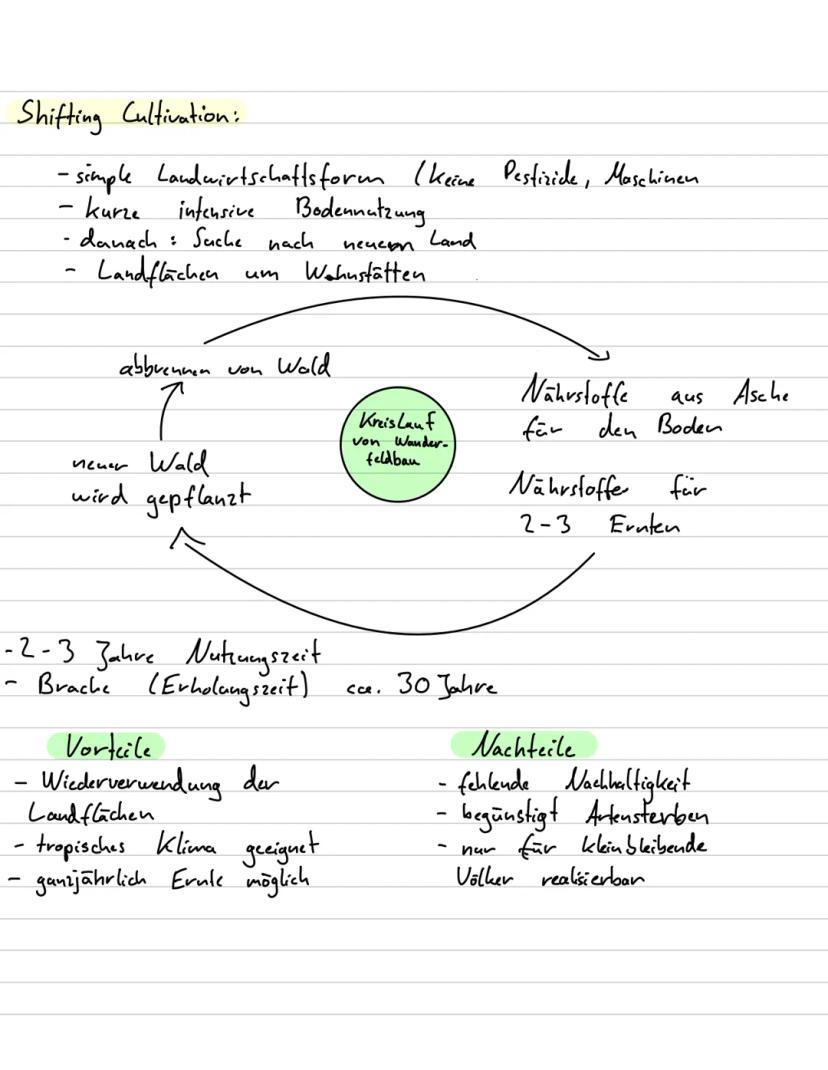 Shifting Cultivation:
- simple Landwirtschaftsform (keine Pestizide, Maschinen
- kurze intensive Bodennutzung
- danach: Suche nach neuem Land
- Landflächen um Wohnstätten
abbrennen von Wald
Nährstoffe aus Asche
für den Boden
Nährstoffe für
2-3 Ernten
neuer Wald
wird gepflanzt
Kreislauf
von Wander-
feldbau
- 2-3 Jahre Nutzungszeit
- Brache (Erholungszeit) ca. 30 Jahre
Vorteile
- Wiederverwendung der
Landflächen
- tropisches Klima geeignet
- ganzjährlich Ernte möglich
Nachteile
- fehlende Nachhaltigkeit
- begünstigt Artensterben
- nur für kleinbleibende
Völker realisierbar